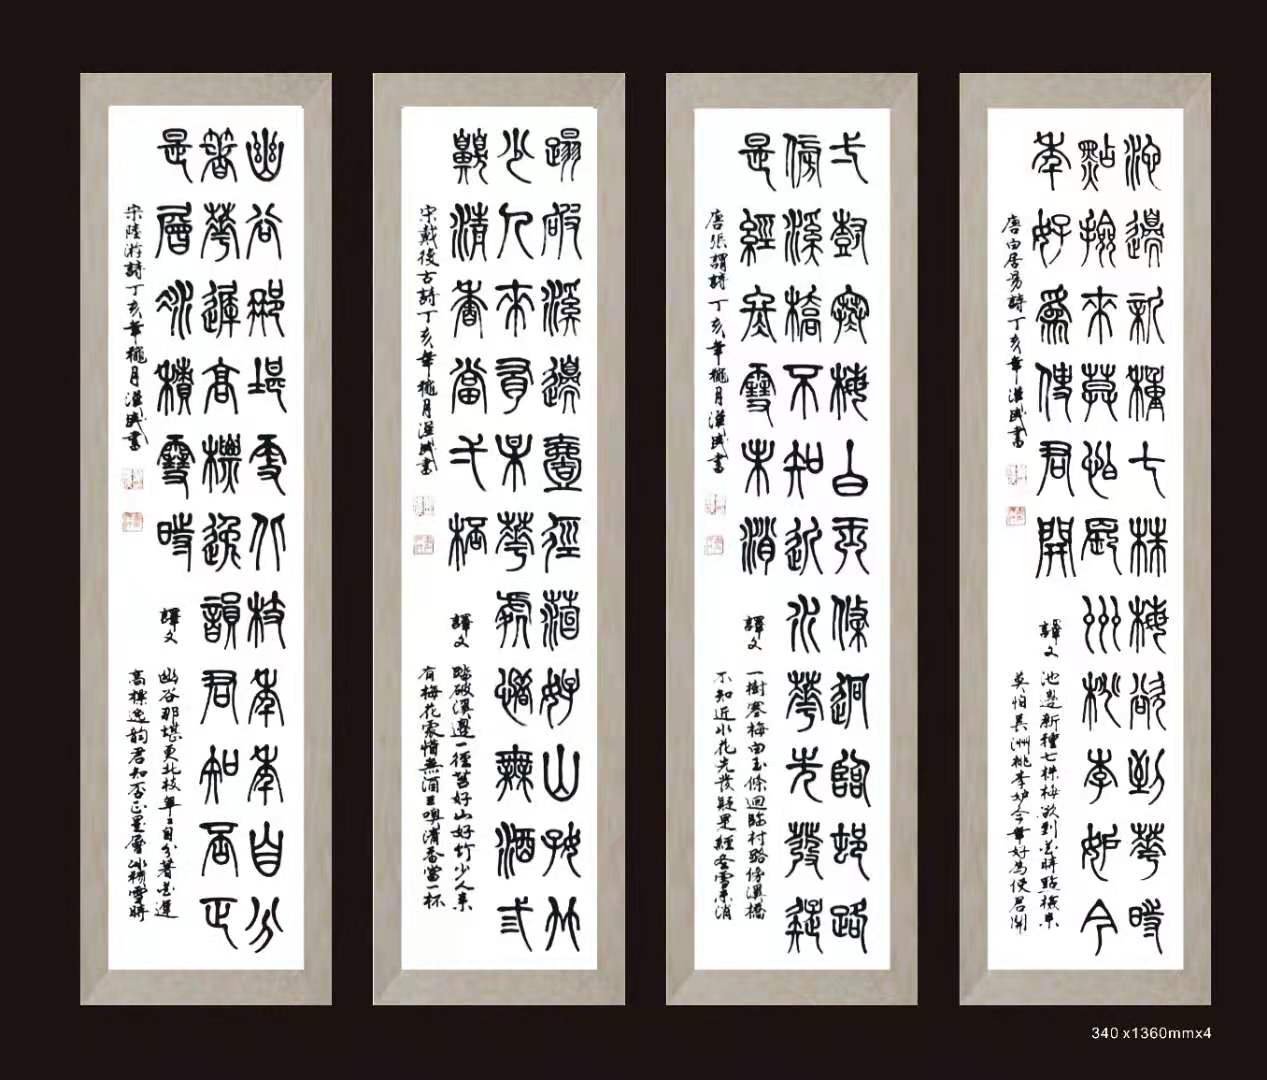 池邊新種七株梅欲到華時
點撿來莫怕長洲桃李妒今
年好為使君開
唐白居易詩丁亥年漢書
譯文
池邊新種七株梅欲到花時點檢來
莫怕長洲桃李妒今年好為使君開
弌樹寒梅白玉條迥臨邨路
傍溪橋不知近水華先發疑
是經冬雪未消
唐張謂詩丁亥年臘月漢書
譯文
一樹寒梅白玉條迥臨村路傍溪橋
不知近水花先發疑是經冬雪未消
蹋破溪邊壹徑苔好山好竹
少人來有某華處惜無酒弎
齅清香當弌桮
宋戴復古詩丁亥年臘月漢書
譯文
踏破溪邊一徑苔好山好竹少人來
有梅花處惜無酒三嗅清香當一杯
幽谷那堪更北枝年年自分
箸華遲高標逸韻君知否正
是層冰積雪時
宋陸游詩丁亥年臘月漢書
譯文
幽谷那堪更北枝年〻自分著花遲
高標逸韵君知否正是層冰積雪時
340 x1360mmx4